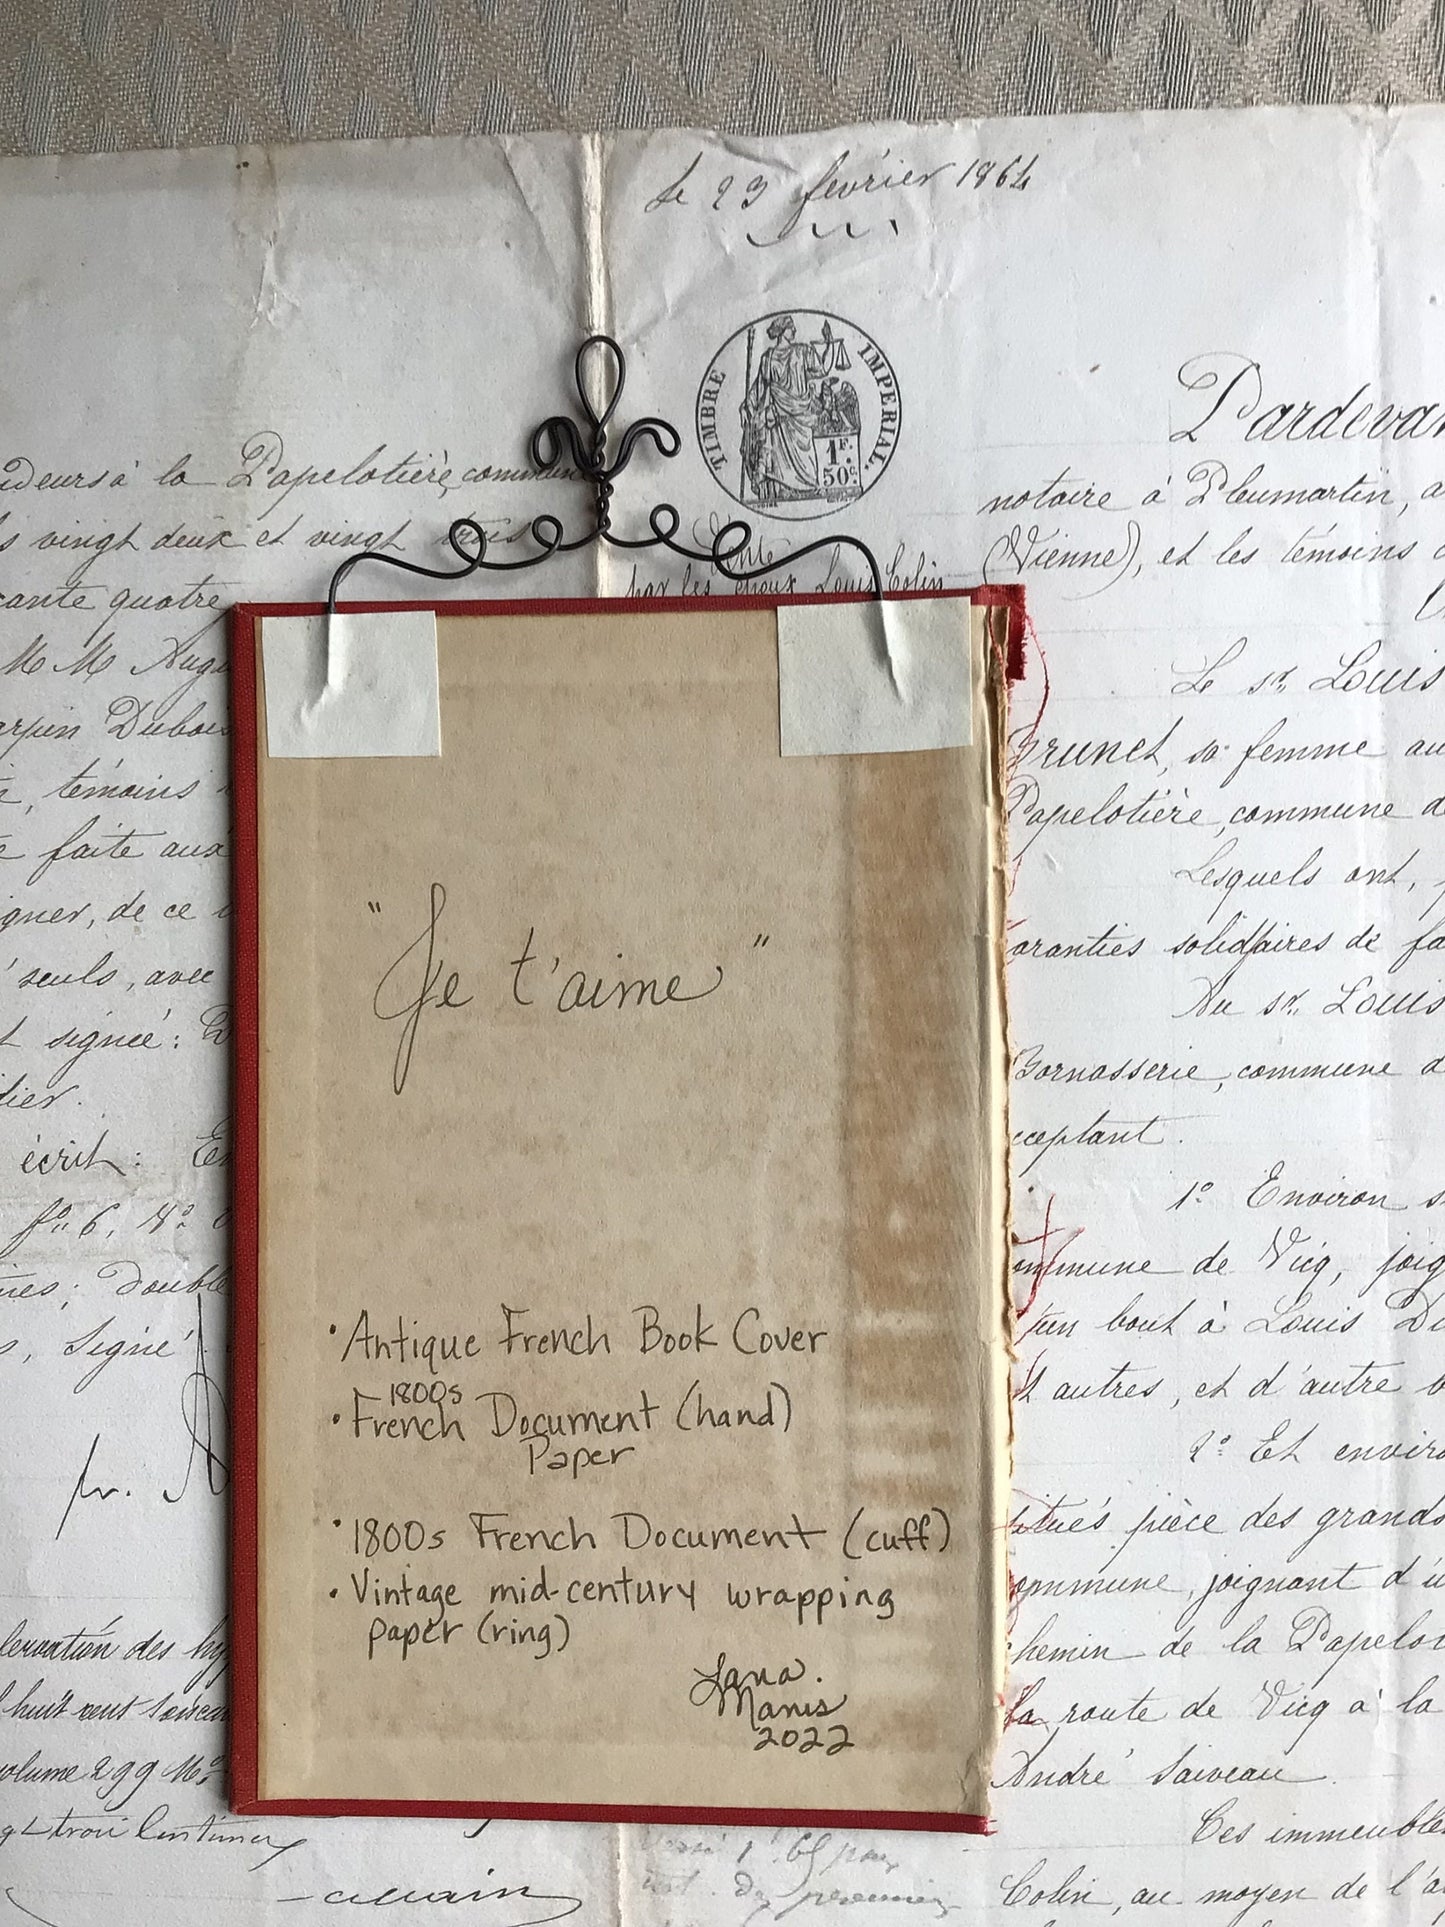 le 23 février 1864
TIMBRE IMPERIAL.
1F.
50c.
à la Papelotière, commune
vingt deux et vingt trois
quatre
M M
Dubois
témoins
faite aux
de ce
seuls, avec
signé:
écrit:
fo. 6,
Double
Signé
pr.
des
huit cent
volume 299
Vente
par les époux Louis Colin
Pardevan
notaire à Pleumartin, a
(Vienne), et les témoins
Le sr. Louis
Brunet, sa femme au
Papelotière, commune de
Lesquels ont,
solidaires de fa
Au sr. Louis
Bornasserie, commune d
cceptant.
1o Environ s
commune de Vicq, joig
bout à Louis
autres, et d'autre
2o Et enviro
situés pièce des grands
commune, joignant d'u
chemin de la Papelot
la route de Vicq à la
André Saiveau.
Ces immeuble
Colin, au moyen de l'a
"Je t'aime"
• Antique French Book Cover
1800s
• French Document (hand)
Paper
• 1800s French Document (cuff)
• Vintage mid-century wrapping
paper (ring)
Lana.
Manis
2022